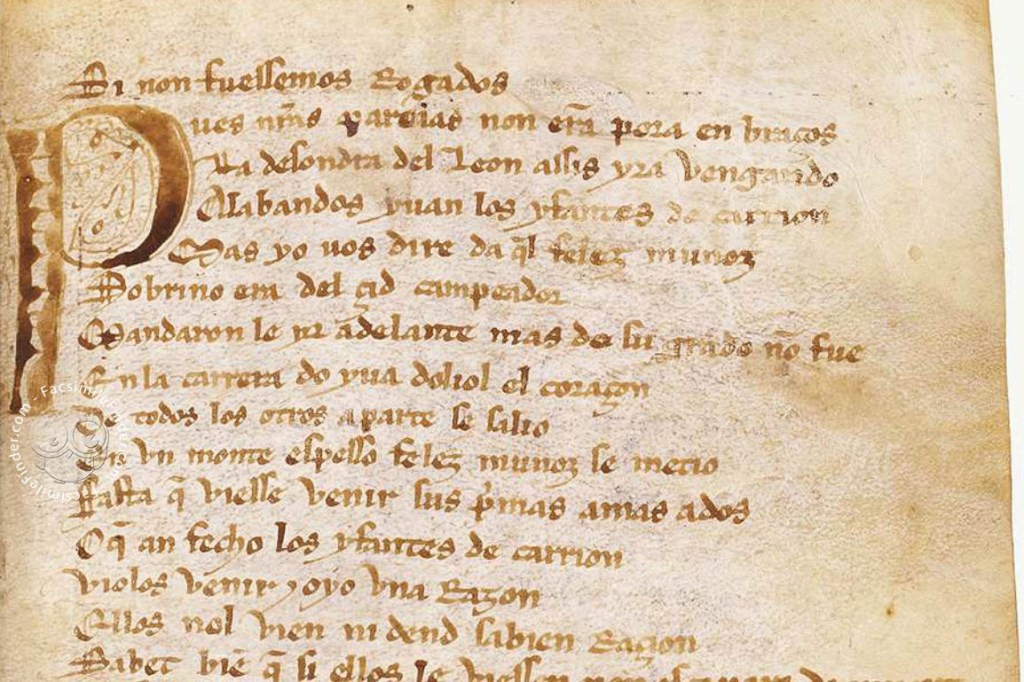 Si non fuessemos Rogados
Pues nr̃as pareias non erã pora en braços
La desondra del Leon assis yra vengando
Alabandos yuan los yfantes de carrion
Mas yo uos dire da q̃l felez munoz
Sobrino era del çid campeador
Mandaron le yr adelante mas de su grado nõ fue
En la carrera do yua doliol el coraçon
De todos los otros aparte se salio
En vn monte espesso felez munoz se metio
Fasta q̃ viesse venir sus p̃mas amas ados
O q̃ an fecho los yfantes de carrion
violos venir y oyo vna Razon
Ellos nol vien ni dend sabien Raçion
Sabet biẽ q̃ si ellos le viessen non
facsimilefinder.com